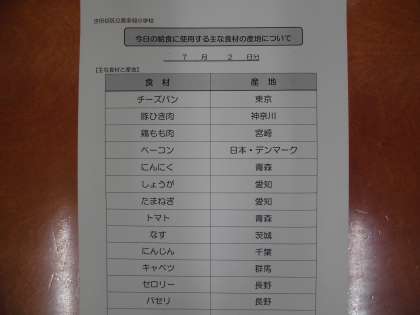 今日の給食に使用する主な食材の産地について
7 月 2 日分
【主な食材と産地】
食 材 産 地
チーズパン 東京
豚ひき肉 神奈川
鶏もも肉 宮崎
ベーコン 日本・デンマーク
にんにく 青森
しょうが 愛知
たまねぎ 愛知
トマト 青森
なす 茨城
にんじん 千葉
キャベツ 群馬
セロリー 長野
パセリ 長野